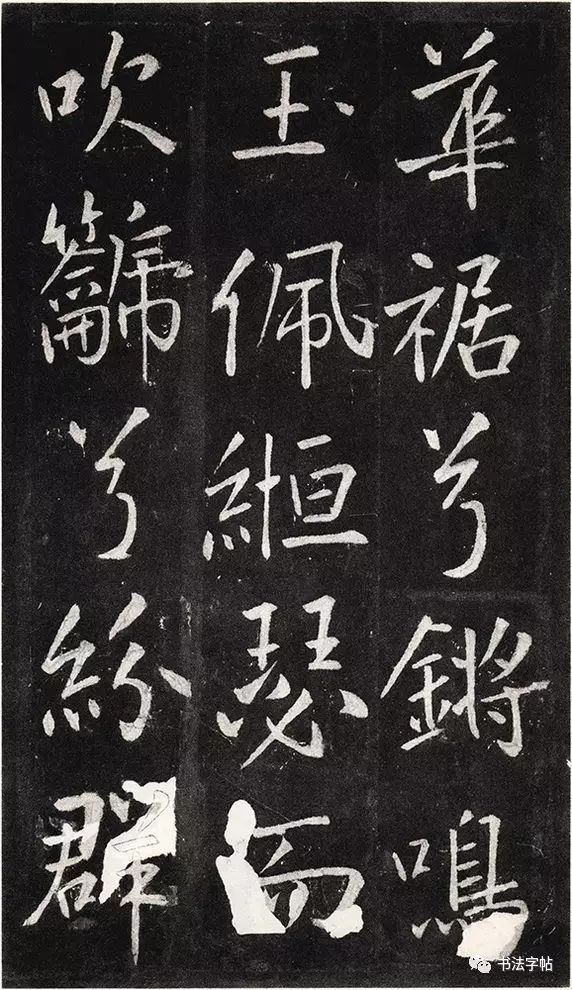 華裾兮鏘鳴
玉佩絙瑟而
吹籲兮紛群
书法字帖